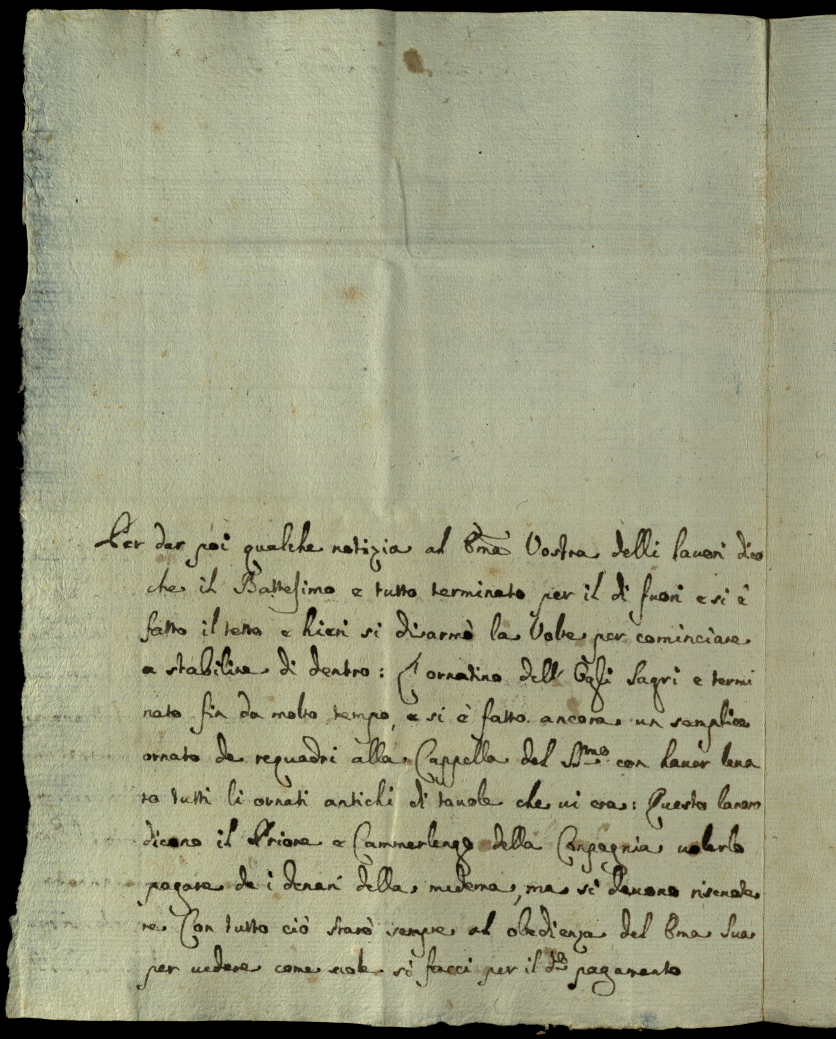 Per dar poi qualche notizia al Ema Vostra delli lauori dico
che il Battesimo e tutto terminato per il di fuori e si è
fatto il tetto e hieri si disarmò la Volta per cominciare
a stabilire di dentro: L'ornatino dell' Ogli Sagri e termi
nato fin da molto tempo, e si è fatto ancora un semplice
ornato de requadri alla Cappella del SSmo con hauer leua
to tutti li ornati antichi di tauole che ui era: Questo lauoro
dicono il Priore e Cammerlengo della Compagnia uolerlo
pagare de i denari della medema, ma si deuono riscuote
re Con tutto ciò starò sempre al obedienza del Ema Sua
per uedere come uole si facci per il do pagamento